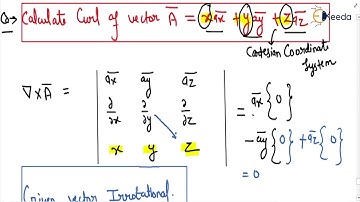 Q→ Calculate Curl of vector A̅ = x a̅x + y a̅y + z a̅z
Cartesian Coordinate
System
∇×A̅ = | a̅x a̅y a̅z |
| ∂/∂x ∂/∂y ∂/∂z |
| x y z |
= a̅x {0}
- a̅y {0} + a̅z {0}
= 0
Given vector Irrotational.